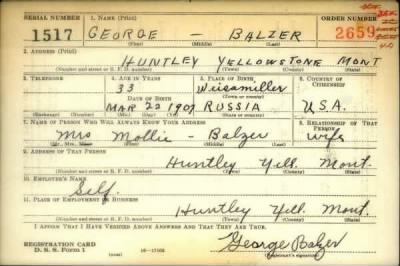 SERIAL NUMBER 1. NAME (Print) ORDER NUMBER
1517 GEORGE - BALZER 2659
(First) (Middle) (Last)
2. ADDRESS (Print)
HUNTLEY YELLOWSTONE MONT
(Number and street or R. F. D. number) (Town) (County) (State)
3. TELEPHONE 4. AGE IN YEARS 5. PLACE OF BIRTH 6. COUNTRY OF CITIZENSHIP
33 Weisamiller
DATE OF BIRTH (Town or county)
MAR 22 1907 RUSSIA U.S.A.
(Exchange) (Number) (Mo.) (Day) (Yr.) (State or country)
7. NAME OF PERSON WHO WILL ALWAYS KNOW YOUR ADDRESS 8. RELATIONSHIP OF THAT PERSON
Mrs Mollie - Balzer wife
(Mr., Mrs., Miss) (First) (Middle) (Last)
9. ADDRESS OF THAT PERSON
Huntley Yell. Mont.
(Number and street or R. F. D. number) (Town) (County) (State)
10. EMPLOYER'S NAME
Self.
11. PLACE OF EMPLOYMENT OR BUSINESS
Huntley Yell. Mont.
(Number and street or R. F. D. number) (Town) (County) (State)
I AFFIRM THAT I HAVE VERIFIED ABOVE ANSWERS AND THAT THEY ARE TRUE.
REGISTRATION CARD
D. S. S. Form 1 16-17105 George Balzer
(Registrant's signature)